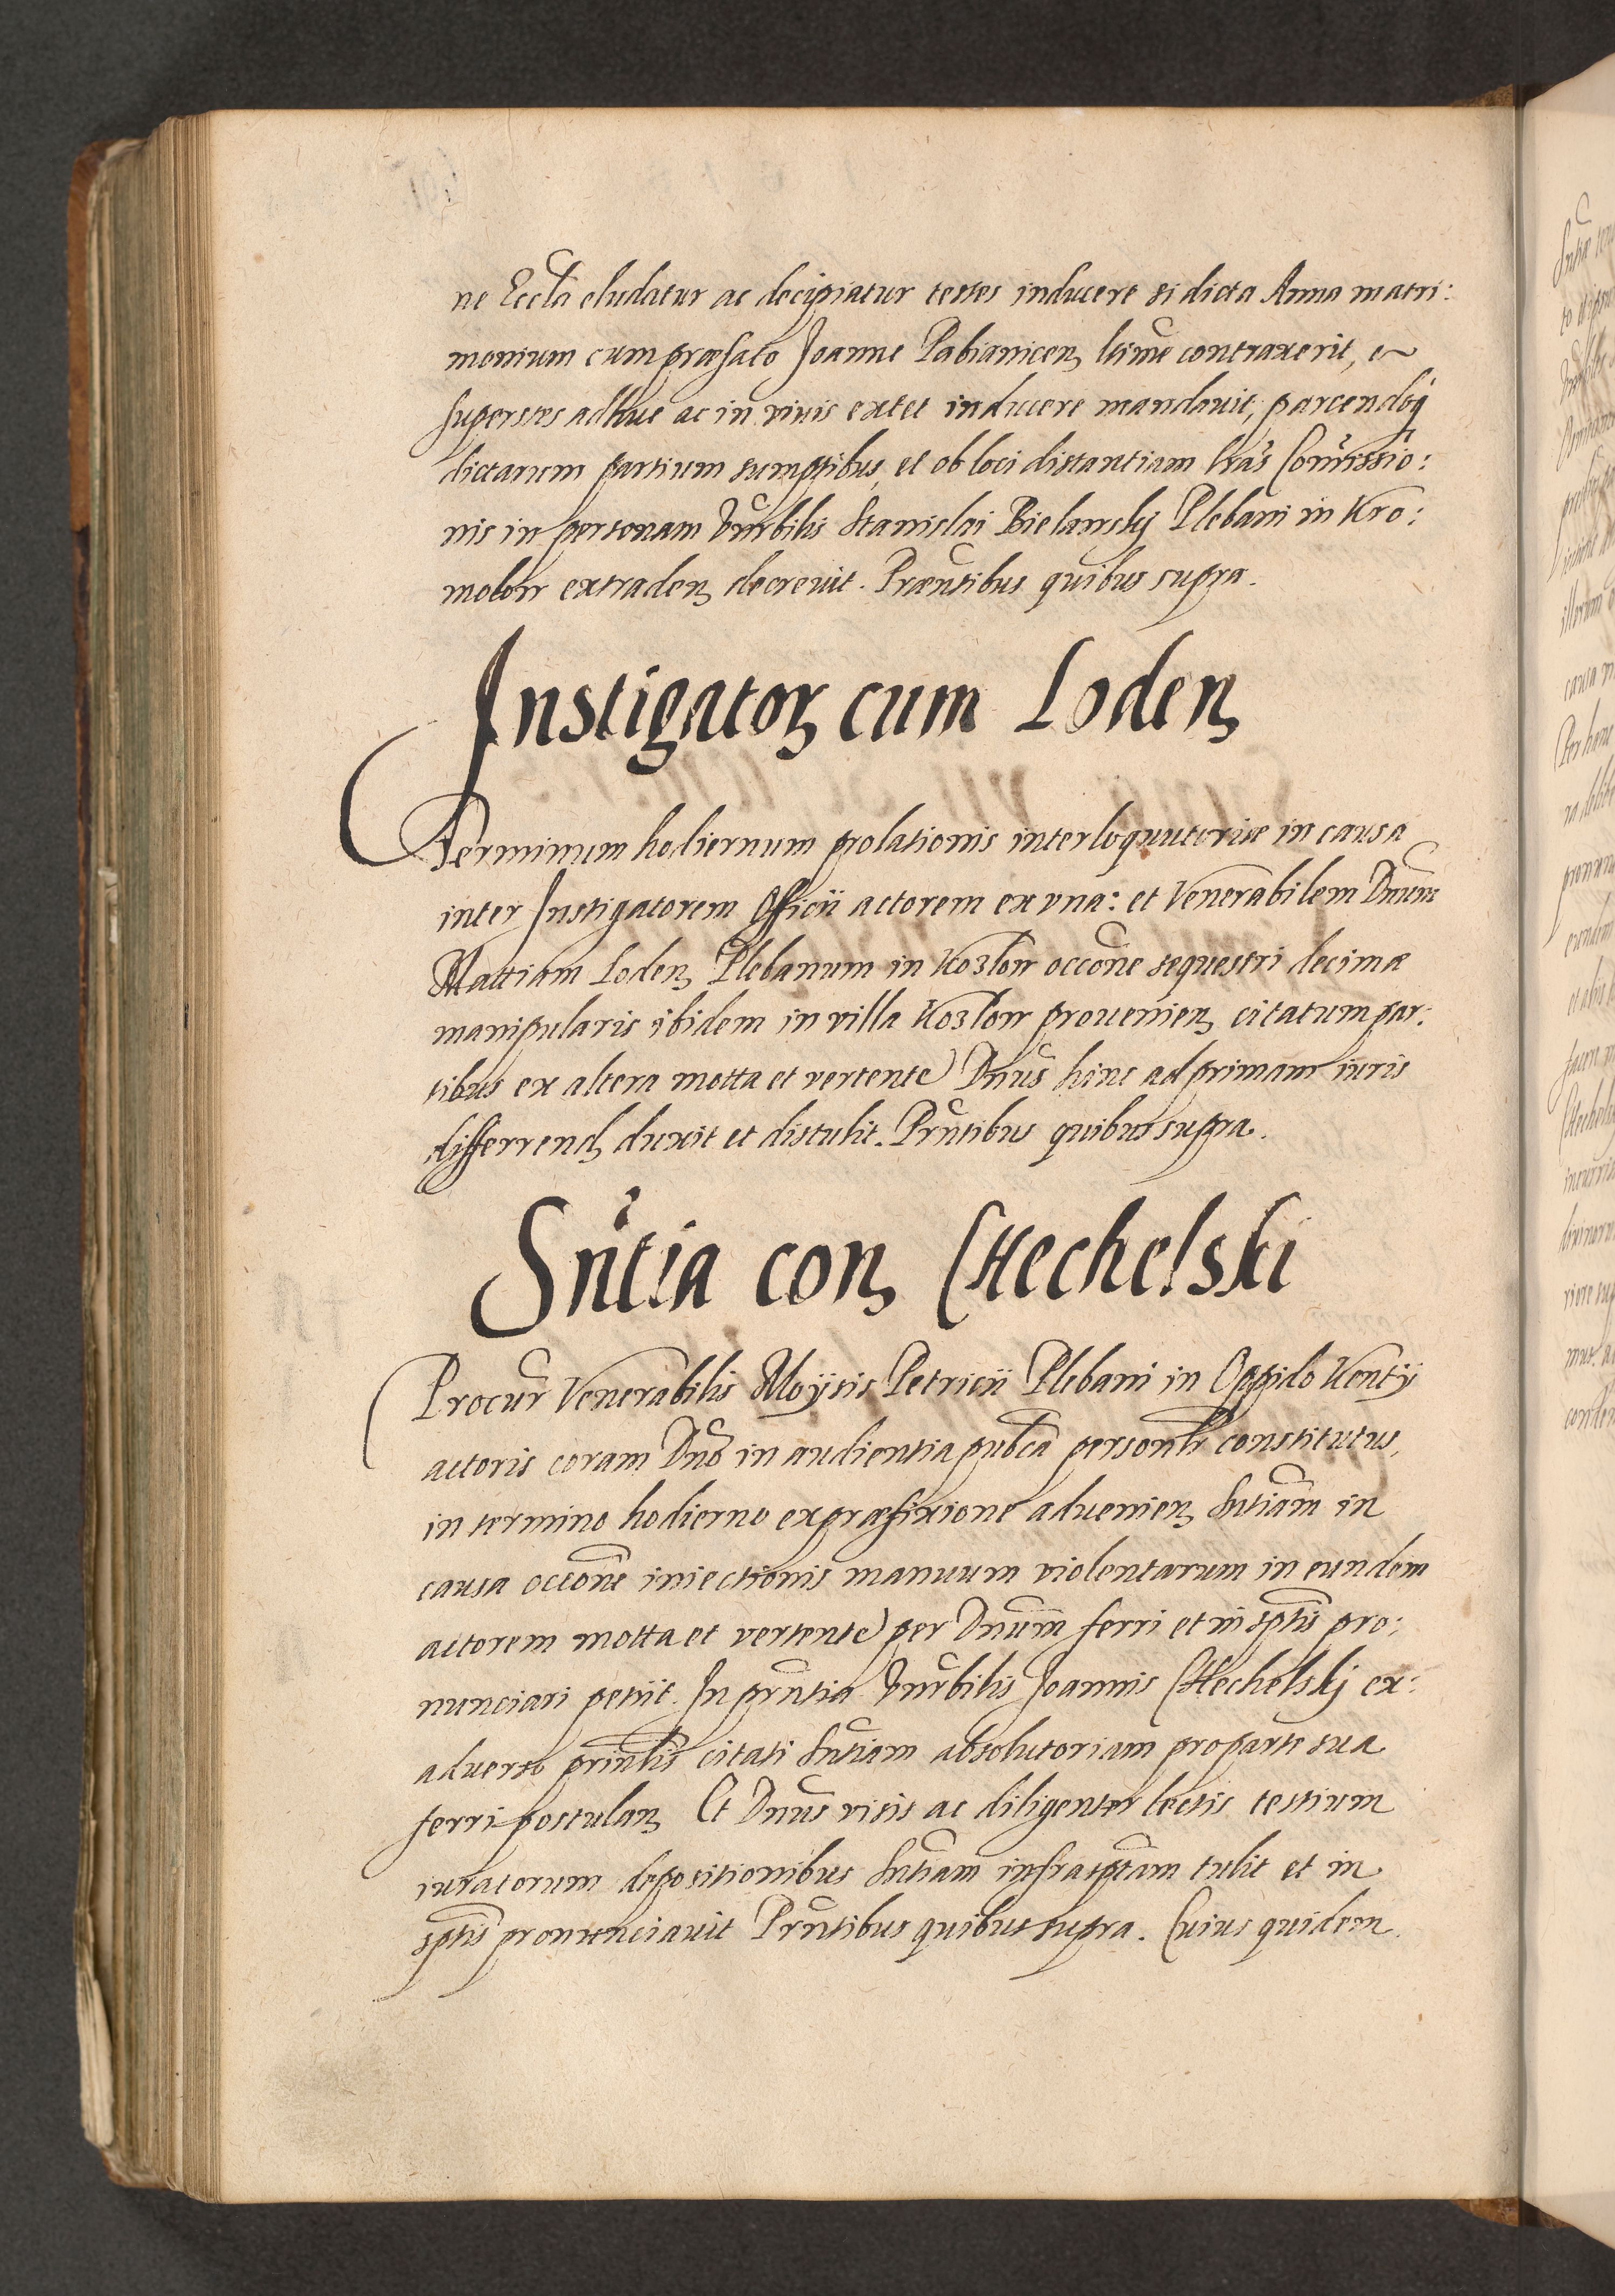 ne Eccła eludatur ac decipiatur testes inducere si dicta Anna matri:
monium cum præfato Joanne Pabianicen ltime contraxerit, et
superstes adhuc ac in viuis extet inducere mandauit, parcendoq
dictarum partium sumptibus, et ob loci distantiam lras Comissio:
nis in personam Vnrbilis Stanislai Bielawskj Plebani in Kro:
molow extraden decreuit. Præntibus quibus supra.
Instigator cum Loden
Terminum hodiernum prolationis interloquutoriæ in causa
inter Instigatorem Officii actorem ex vna: et Venerabilem Dnum
Mattiam Loden Plebanum in Kozlow occone sequestri decimæ
manipularis ibidem in villa Kozlow prouenien citatum par:
tibus ex altera motta et vertente Dnus hinc ad primam iuris
differrend duxit et distulit. Prntibus quibus supra.
Sntia con Chechelski
Procur Venerabilis Moysis Petricii Plebani in Oppido Kenty
actoris coram Dno in audientia pubca personlr constitutus,
in termino hodierno ex præfixione aduenien Sntiam in
causa occone iniectionis manuum violentarum in eundem
actorem motta et vertente per Dnum ferri et in sptis pro:
nunciari petiit. In prntia Vnrbilis Joannis Chechelskj ex:
aduerso prinlis citati Sntiam absolutoriam pro parte sua
ferri postulan Et Dnus visis ac diligenter lectis testium
iuratorum depositionibus Sntiam infrasptam tulit et in
sptis pronunciauit Prntibus quibus supra. Cuius quidem